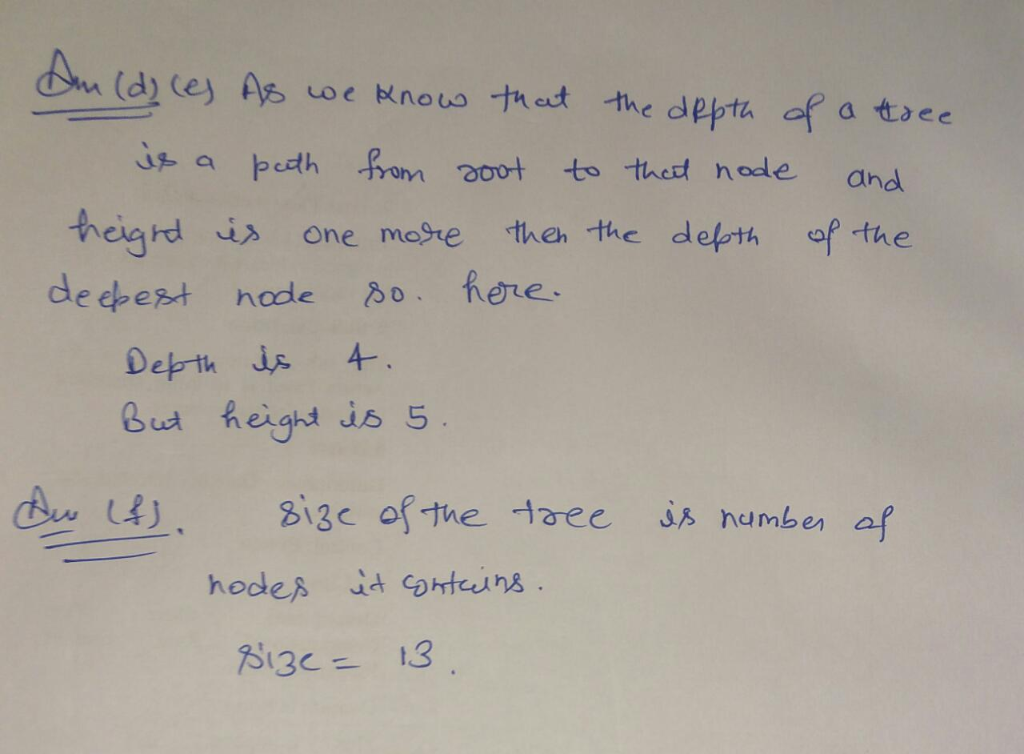 Ans (d) (e) As we know that the depth of a tree
is a path from root to that node and
heignt is one more then the depth of the
deepest node so. here.
Depth is 4.
But height is 5.
Ans (f). Size of the tree is number of
nodes it contains.
Size = 13.